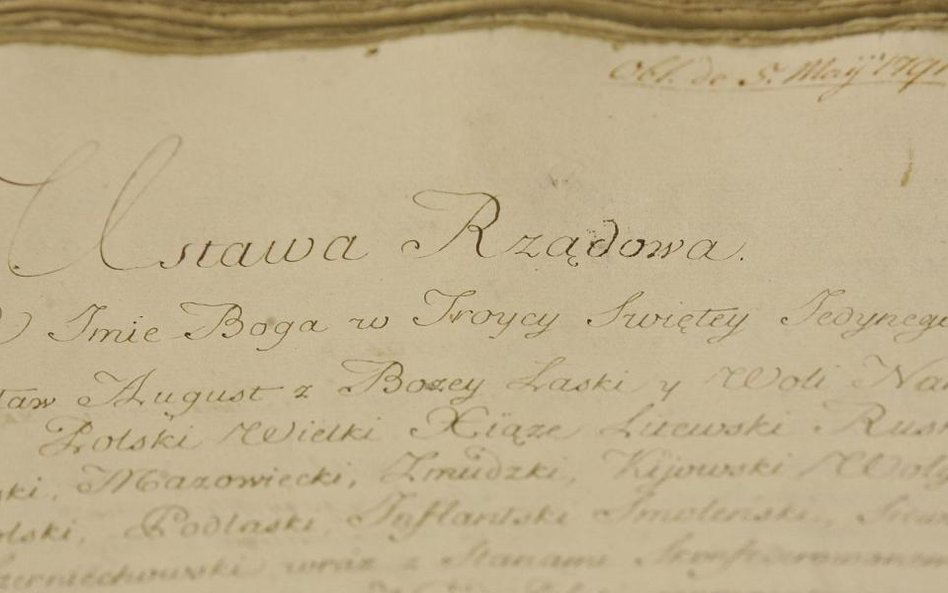 Obl. de 5. Maÿ 1791
Ustawa Rządowa.
Imie Boga w Troycy Swiętey Jedynego
taw August z Bozey Łaski y Woli Na
Polski Wielki Xiąze Litewski Rusk
ski, Mazowiecki, Zmudzki, Kijowski Woły
olski, Podlaski, Inflantski Smolenski, Siew
zerniechowski wraz z Stanami Skonfederowanemi